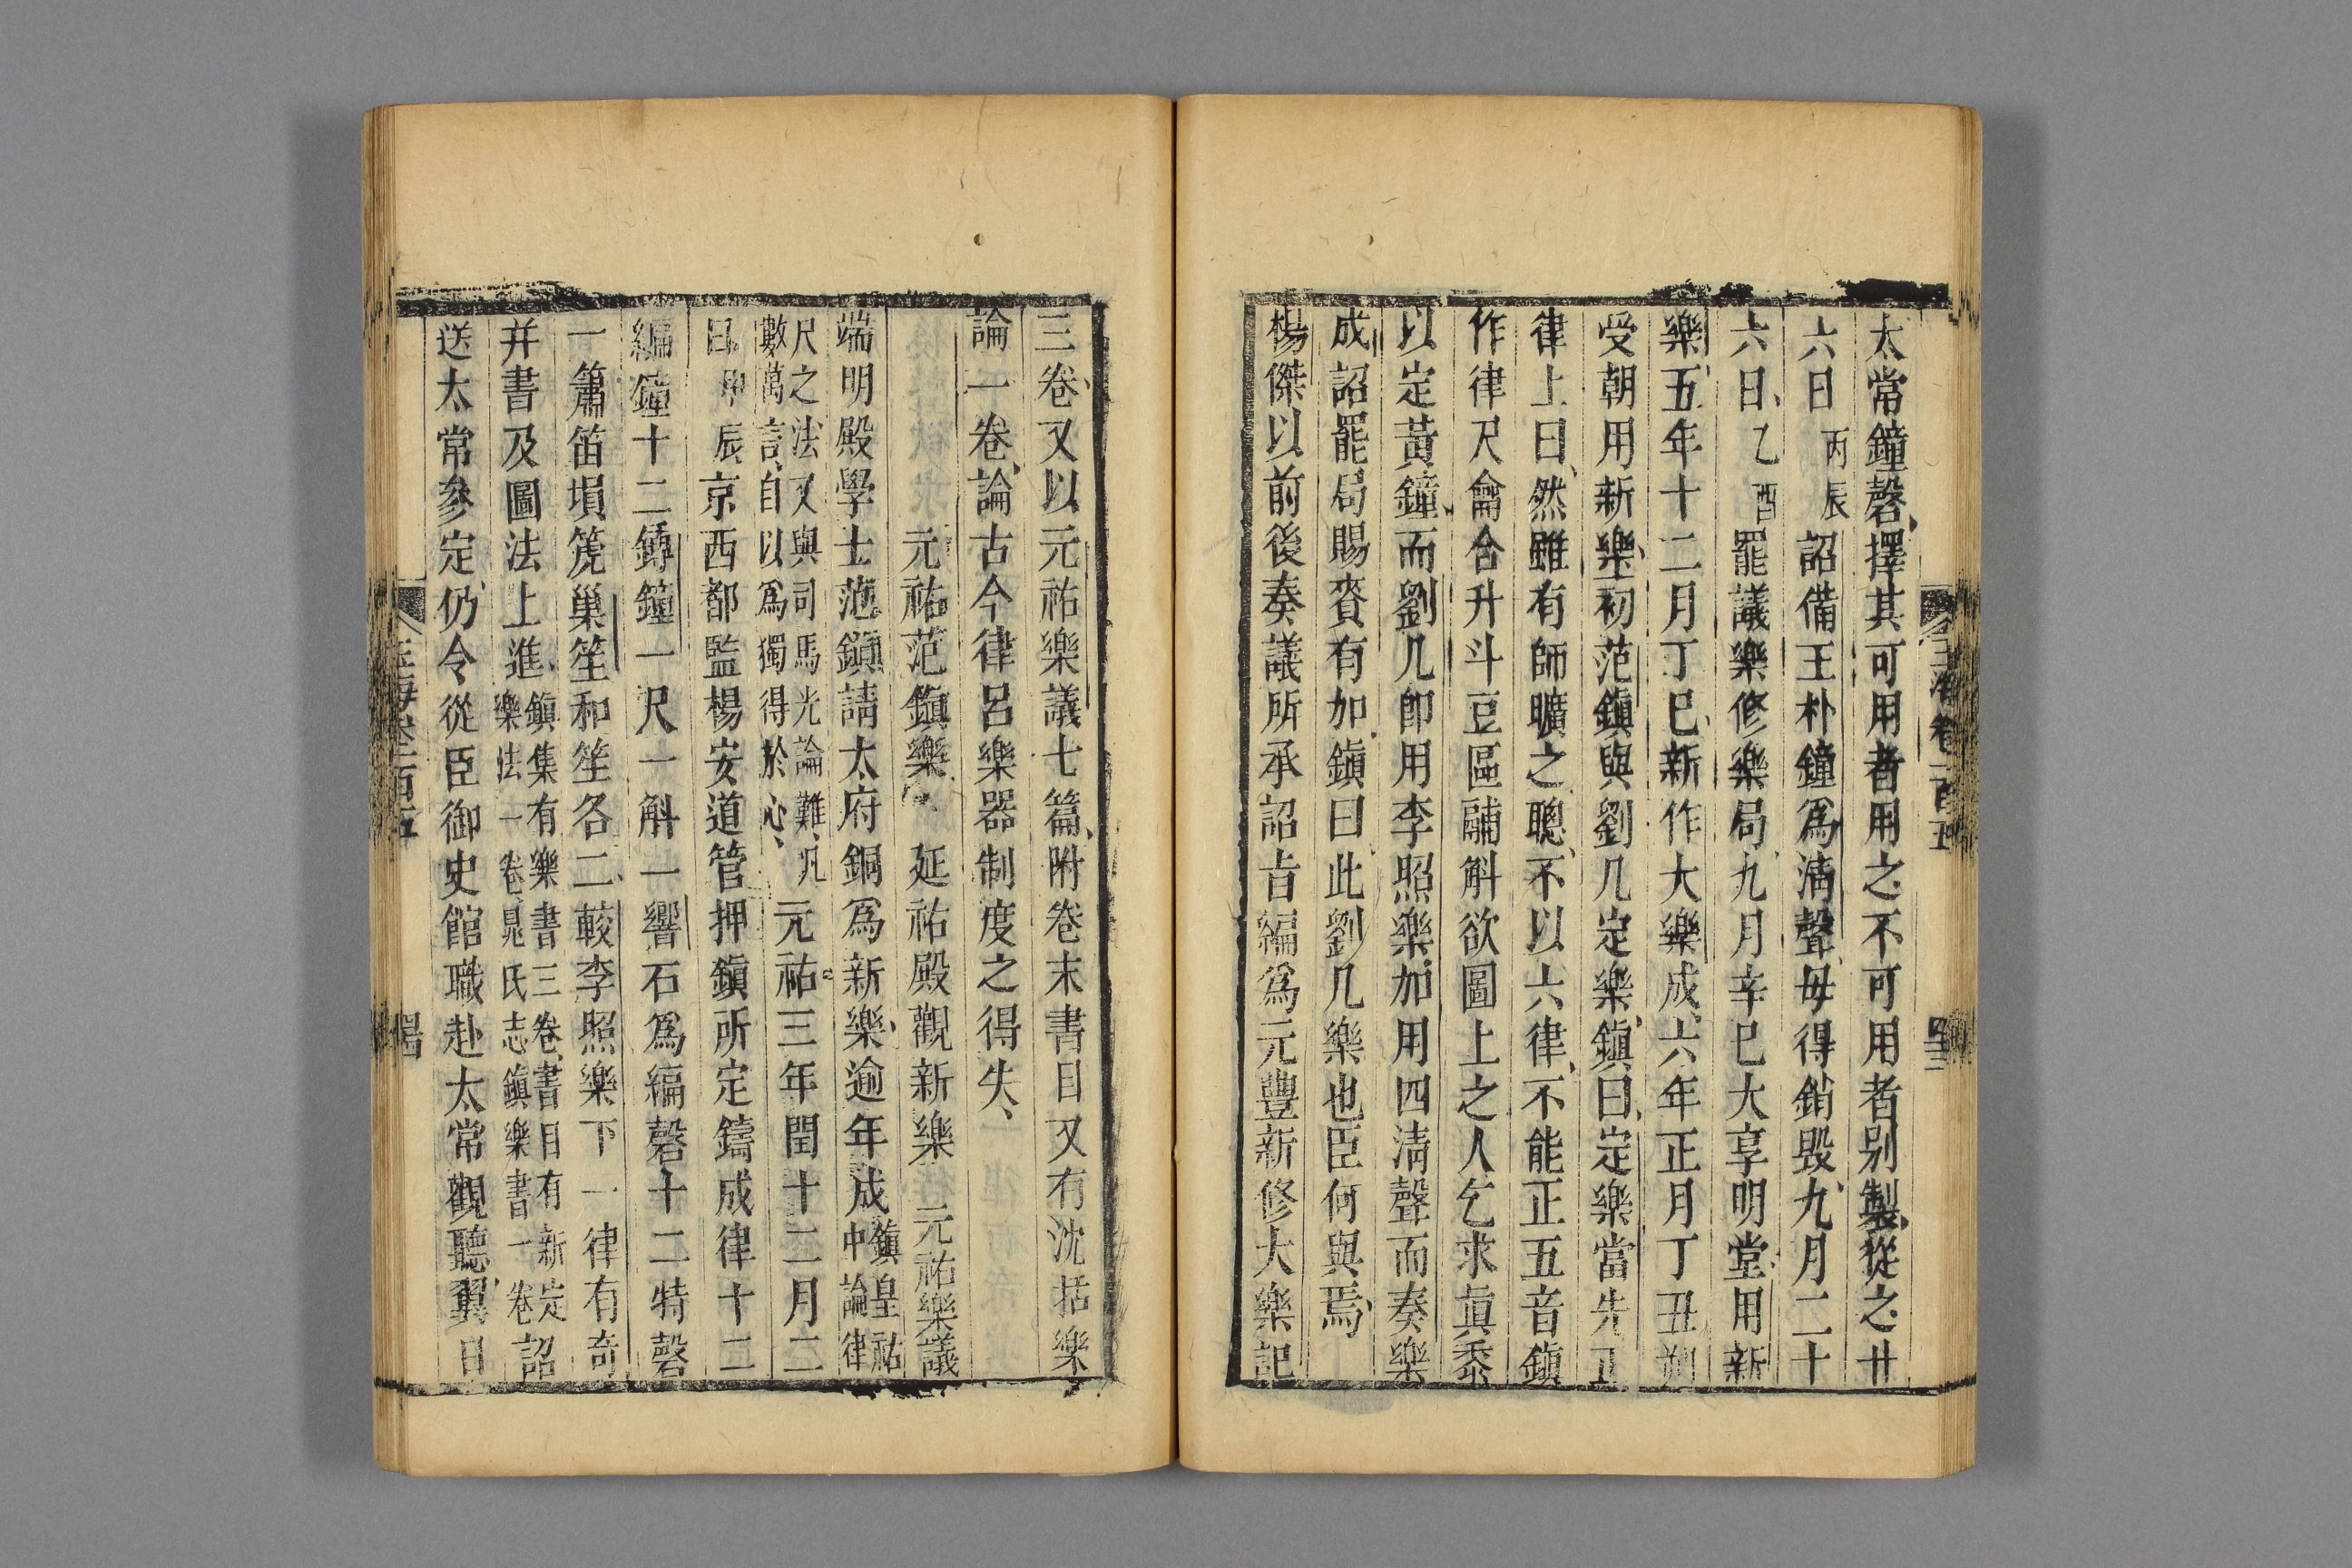 太常鐘磬擇其可用者用之不可用者別製從之廿
六日丙辰詔備王朴鐘為清聲毋得銷毀九月二十
六日乙酉罷議樂修樂局九月辛巳大享明堂用新
樂五年十二月丁巳新作大樂成六年正月丁丑朔
受朝用新樂初范鎮與劉几定樂鎮曰定樂當先正
律上曰然雖有師曠之聰不以六律不能正五音鎮
作律尺龠合升斗豆區鬴斛欲圖上之人乞求真黍
以定黃鐘而劉几卽用李照樂加用四清聲而奏樂
成詔罷局賜賚有加鎮曰此劉几樂也臣何與焉
楊傑以前後奏議所承詔旨編為元豐新修大樂記
三卷又以元祐樂議七篇附卷末書目又有沈括樂
論一卷論古今律呂樂器制度之得失
元祐范鎮樂 延祐殿觀新樂 元祐樂議
端明殿學士范鎮請太府銅為新樂逾年成鎮皇祐
中論律
尺之法又與司馬光論難凡
數萬言自以為獨得於心元祐三年閏十二月二
日甲辰京西都監楊安道管押鎮所定鑄成律十二
編鐘十二鎛鐘一尺一斛一響石為編磬十二特磬
一簫笛塤箎巢笙和笙各二較李照樂下一律有奇
并書及圖法上進鎮集有樂書三卷書目有新定
樂法一卷晁氏志鎮樂書一卷詔
送太常參定仍令從臣御史館職赴太常觀聽翼日
玉海卷一百五